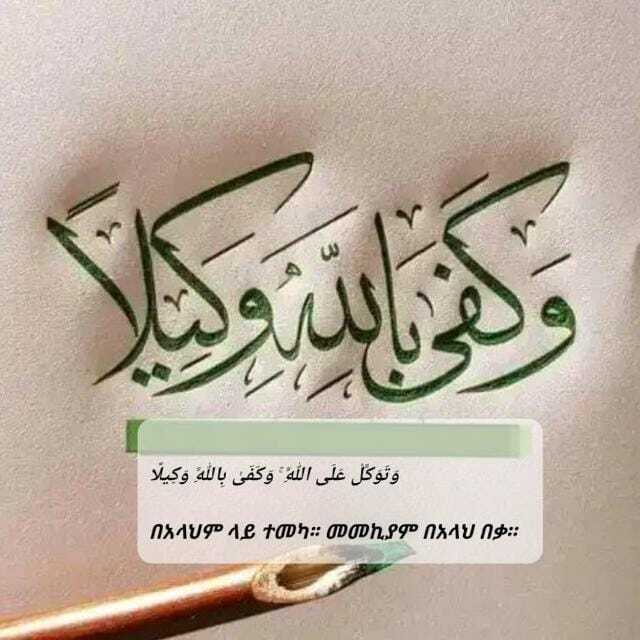 وَكَفَى بِاللَّهِ وَكِيلاً
وَتَوَكَّلْ عَلَى اللَّهِ ۚ وَكَفَىٰ بِاللَّهِ وَكِيلًا
በአላህም ላይ ተመካ። መመኪያም በአላህ በቃ።